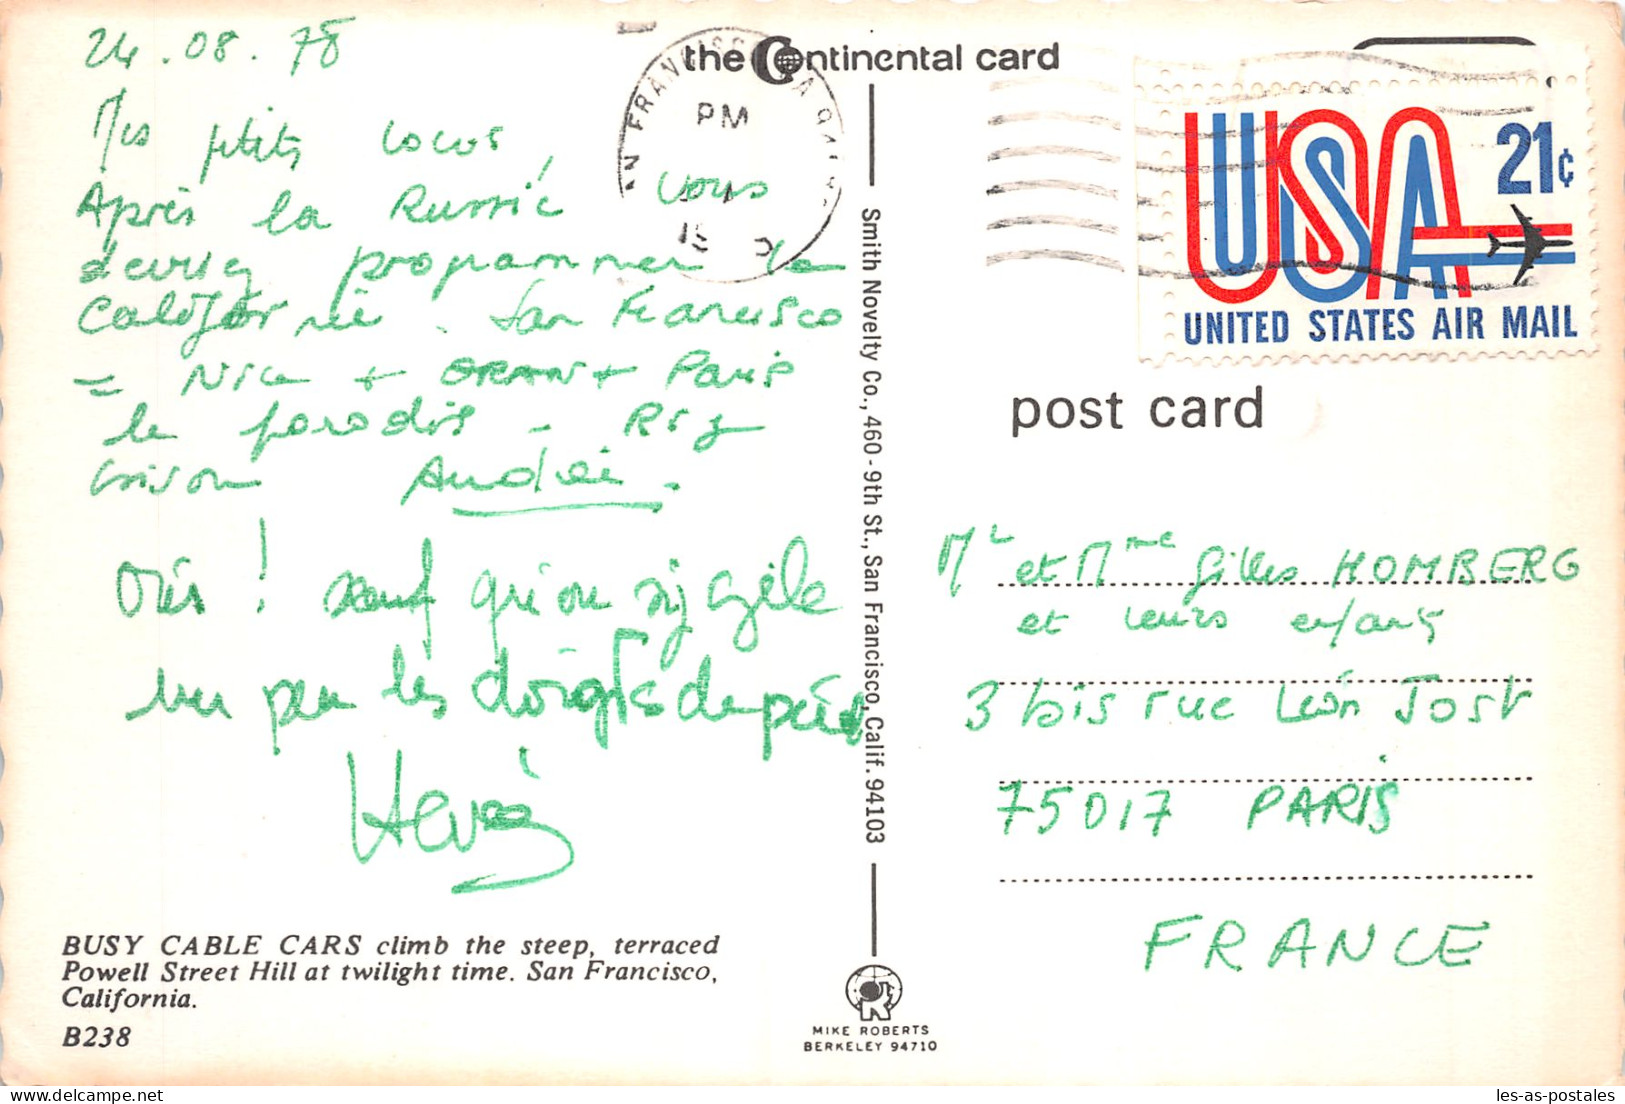 24.08.78
Mes petits cocos,
Après la Russie, vous
devriez programmer la
Californie. San Francisco
= Nice + ORAN + Paris
le paradis -
Andrée -
! sauf qu'on s'y gèle
un peu les doigts de pied
Hervé
BUSY CABLE CARS climb the steep, terraced
Powell Street Hill at twilight time. San Francisco,
California.
B238
the Continental card
Smith Novelty Co., 460-9th St., San Francisco, Calif. 94103
MIKE ROBERTS
BERKELEY 94710
AN FRANCISC
PM
USA 21¢
UNITED STATES AIR MAIL
post card
Mr et Mme Gilles HOMBERG
et leurs enfants
3 bis rue Léon Jost
75017 PARIS
FRANCE
les-as-postales